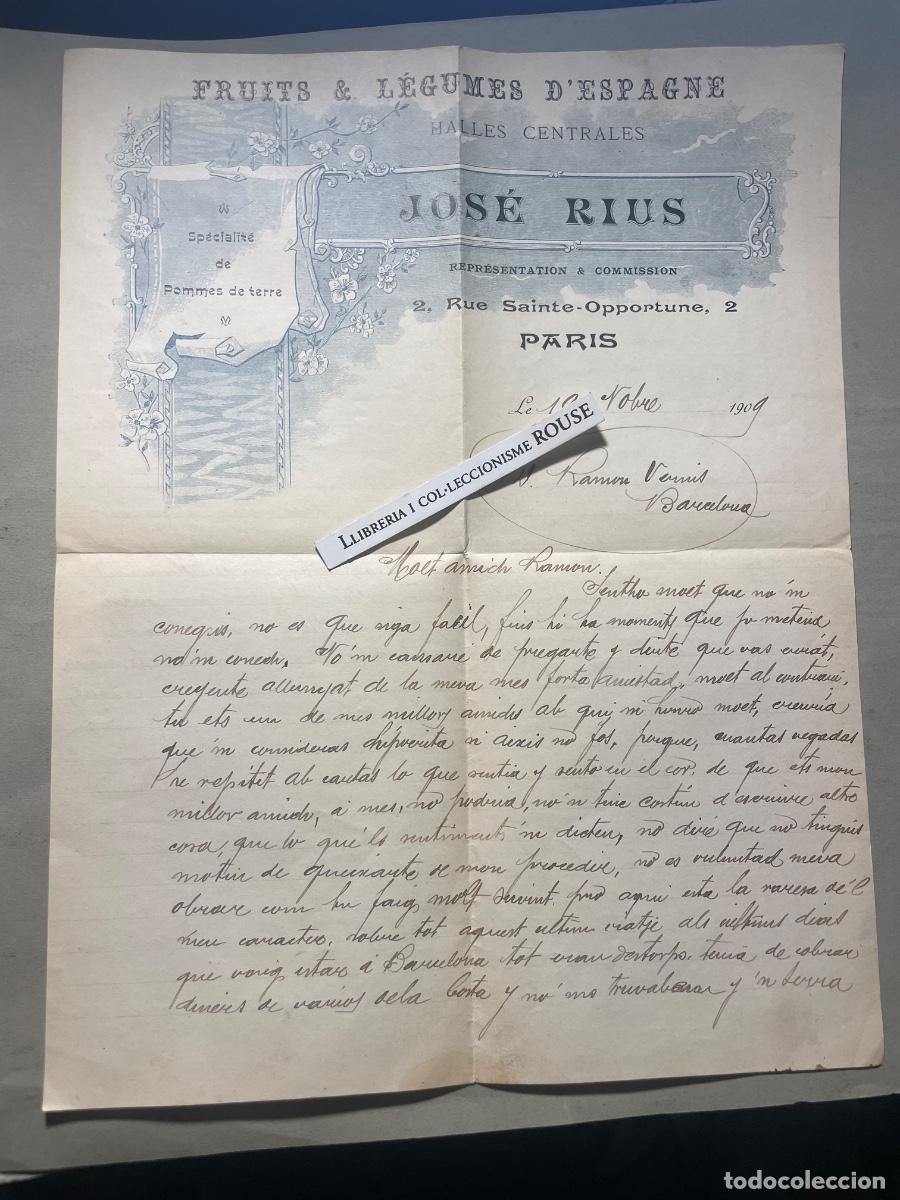 FRUITS & LÉGUMES D'ESPAGNE
HALLES CENTRALES
JOSÉ RIUS
Spécialité
de
Pommes de terre
REPRÉSENTATION & COMMISSION
2, Rue Sainte-Opportune, 2
PARIS
Le Nobre 1909
LLIBRERIA I COL·LECCIONISME ROUSE
Ramon Vernis
Barcelona
Molt amich Ramon.
Sentho molt que no'm
conegis, no es que siga fácil, fins hi ha moments que jo mateix
no'm conech. No'm cansaré de pregarte y dirte que vas errat,
creyente allunyat de la meva mes forta amistad, molt al contrari,
tu ets un de mes millors amichs ab qui m'honro molt, creuria
que'm consideras hipócrita si aixis no fos, porque, cuantas vegadas
he repetit ab cartas lo que sentia y sento en el cor. de que ets mon
millor amich, á mes, no podria, no'n tinc costúm d'escriurer altre
cosa, que lo qué'ls sentiments m dicten, no diré que no tinguis
motiu de queixarte de mon procedir, no es voluntad meva
obrar com ho faig molt sovint, peró aqui esta la raresa dél
meu caracter, sobre tot aquest ultim viatje als ultims dias
que vareig estar á Barcelona tot eran destorps, tenia de cobrar
diners de varios dela Costa y no'ls truvaba y
todocoleccion